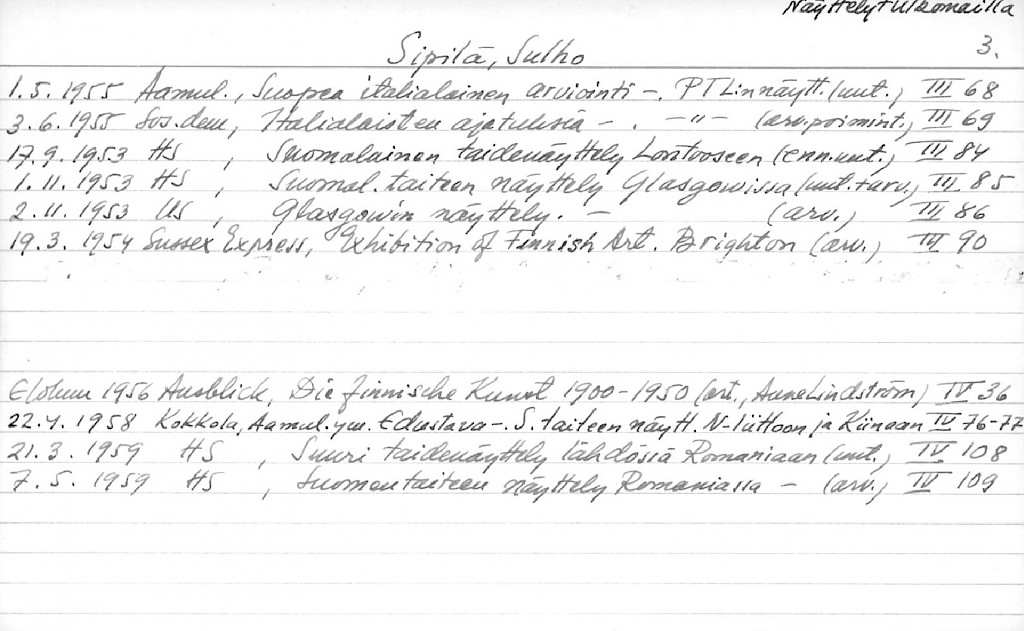 Näyttelyt Ulkomailla
3.
Sipilä, Sulho
1.5.1955 Aamul., Suopea italialainen arviointi -. PTLinnäytt. (uut.) III 68
3.6.1955 Sos.dem, Italialaisten ajatuksia - . -"- (arv.poimint.) III 69
17.9.1953 HS , Suomalainen taidenäyttely Lontooseen (enn.uut.) III 84
1.11.1953 HS , Suomal. taiteen näyttely Glasgowissa (uut.+arv.) III 85
2.11.1953 US , Glasgowin näyttely. - (arv.) III 86
19.3.1954 Sussex Express, Exhibition of Finnish Art. Brighton (arv.) III 90
Elokuu 1956 Ausblick, Die finnische Kunst 1900-1950 (art., Aune Lindström) IV 36
22.4.1958 Kokkola, Aamul. ym. Edustava -. S. taiteen näytt. N-liittoon ja Kiinaan IV 76-77
21.3.1959 HS , Suuri taidenäyttely lähdössä Romaniaan (uut.) IV 108
7.5.1959 HS , Suomen taiteen näyttely Romaniassa - (arv.) IV 109